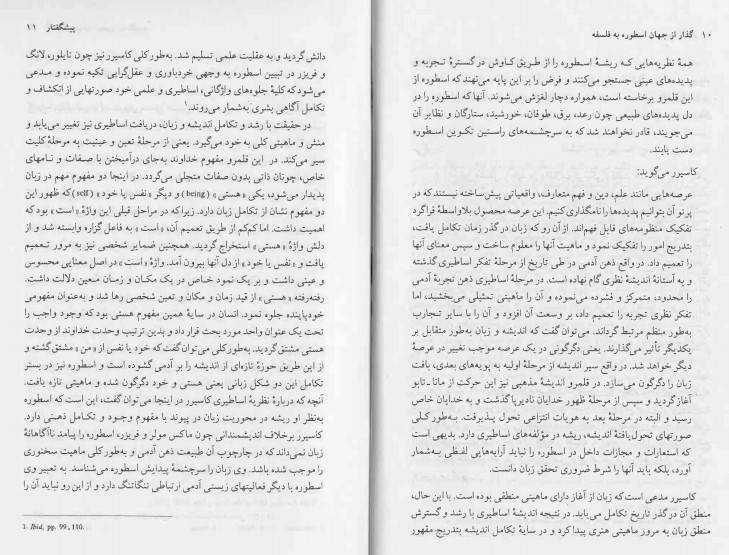 ۱۰ گذار از جهان اسطوره به فلسفه
همهٔ نظریه‌هایی که ریشهٔ اسطوره را از طریق کاوش در گسترهٔ تجربه و
پدیده‌های عینی جستجو می‌کنند و فرض را بر این پایه می‌نهند که اسطوره از
این قلمرو برخاسته است، همواره دچار لغزش می‌شوند. آنها که اسطوره را در
دل پدیده‌های طبیعی چون رعد، برق، طوفان، خورشید، ستارگان و نظایر آن
می‌جویند، قادر نخواهند شد که به سرچشمه‌های راستین تکوین اسطوره
دست یابند.
کاسیرر می‌گوید:
عرصه‌هایی مانند علم، دین و فهم متعارف، واقعیاتی پیش‌ساخته نیستند که در
پرتو آن بتوانیم پدیده‌ها را نامگذاری کنیم. این عرصه محصول بلاواسطهٔ فراگرد
تفکیک منظومه‌های قابل فهم‌اند. از آن رو که زبان در گذر زمان تکامل یافت،
بتدریج امور را تفکیک نمود و ماهیت آنها را معلوم ساخت و سپس معنای آنها
را تعمیم داد. در واقع ذهن آدمی در طی تاریخ از مرحلهٔ تفکر اساطیری گذشته
و به آستانهٔ اندیشهٔ نظری گام نهاده است. در مرحلهٔ اساطیری ذهن تجربهٔ آدمی
را محدود، متمرکز و فشرده می‌نموده و آن را ماهیتی تمثیلی می‌بخشید، اما
تفکر نظری تجربه را تعمیم داد، بر وسعت آن افزود و آن را با سایر تجارب
به‌طور منظم مرتبط گرداند. می‌توان گفت که اندیشه و زبان به‌طور متقابل بر
یکدیگر تأثیر می‌گذارند. یعنی دگرگونی در یک عرصه موجب تغییر در عرصهٔ
دیگر خواهد شد. در واقع سیر اندیشه از مرحلهٔ اولیه به پویه‌های بعدی، بافت
زبان را دگرگون می‌سازد. در قلمرو اندیشهٔ مذهبی نیز این حرکت از مانا ـ تابو
آغاز گردید و سپس از مرحلهٔ ظهور خدایان نادیرپا گذشت و به خدایان خاص
رسید و البته در مرحلهٔ بعد به هویات انتزاعی تحول پذیرفت. به‌طور کلی
صورتهای تحول‌یافتهٔ اندیشه، ریشه در مؤلفه‌های اساطیری دارد. بدیهی است
که استعارات و مجازات داخل در اسطوره را نباید آرایه‌هایی لفظی به‌شمار
آورد، بلکه باید آنها را شرط ضروری تحقق زبان دانست.
کاسیرر مدعی است که زبان از آغاز دارای ماهیتی منطقی بوده است. با این حال،
منطق آن در گذر تاریخ تکامل می‌یابد. در نتیجه اندیشهٔ اساطیری با رشد و گسترش
منطق زبان به مرور ماهیتی هنری پیدا کرد و در سایهٔ تکامل اندیشه بتدریج مقهور
پیشگفتار ۱۱
دانش گردید و به عقلیت علمی تسلیم شد. به‌طور کلی کاسیرر نیز چون تایلور، لانگ
و فریزر در تبیین اسطوره به وجهی خردباوری و عقل‌گرایی تکیه نموده و مدعی
می‌شود که کلیهٔ جلوه‌های واژگانی، اساطیری و علمی خود صورتهایی از انکشاف و
تکامل آگاهی بشری به‌شمار می‌روند.۱
در حقیقت با رشد و تکامل اندیشه و زبان، دریافت اساطیری نیز تغییر می‌یابد و
منش و ماهیتی کلی به خود می‌گیرد. یعنی از مرحلهٔ تعین و عینیت به مرحلهٔ کلیت
سیر می‌کند. در این قلمرو مفهوم خداوند به‌جای درآمیختن با صفات و نامهای
خاص، چونان ذاتی بدون صفات متجلی می‌گردد. در اینجا دو مفهوم مهم در زبان
پدیدار می‌شود، یکی «هستی» (being) و دیگر «نفس یا خود» (self) که ظهور این
دو مفهوم نشان از تکامل زبان دارد. زیرا که در مراحل قبلی این واژهٔ «است» بود که
اهمیت داشت. اما کم‌کم از طریق تعمیم آن، «است» به فاعل گزاره وابسته شد و از
دلش واژهٔ «هستی» استخراج گردید. همچنین ضمایر شخصی نیز به مرور تعمیم
یافت و «نفس یا خود» از دل آنها بیرون آمد. واژهٔ «است» در اصل معنایی محسوس
و عینی داشت و بر یک نمود خاص در یک مکان و زمان معین دلالت داشت.
رفته‌رفته «هستی» از قید زمان و مکان و تعین شخصی رها شد و به‌عنوان مفهومی
خودپاینده جلوه نمود. انسان در سایهٔ همین مفهوم هستی بود که وجود واجب را
تحت یک عنوان واحد مورد بحث قرار داد و بدین ترتیب وحدت خداوند از وحدت
هستی مشتق گردید. به‌طور کلی می‌توان گفت که خود یا نفس از «من» مشتق گشته و
از این طریق حوزهٔ تازه‌ای از اندیشه را بر آدمی گشوده است و اسطوره نیز در بستر
تکامل این دو شکل زبانی یعنی هستی و خود دگرگون شده و ماهیتی تازه یافت.
آنچه که دربارهٔ نظریهٔ اساطیری کاسیرر در اینجا می‌توان گفت، این است که اسطوره
به‌نظر او ریشه در محوریت زبان در پیوند با مفهوم وجود و تکامل ذهنی دارد.
کاسیرر برخلاف اندیشمندانی چون ماکس مولر و فریزر، اسطوره را پیامد ناآگاهانهٔ
زبان نمی‌داند که در چارچوب آن طبیعت ذهن آدمی و به‌طور کلی ماهیت سخنوری
را موجب شده باشد. وی زبان را سرچشمهٔ پیدایش اسطوره می‌شناسد. به تعبیر وی
اسطوره با دیگر فعالیتهای زیستی آدمی ارتباطی تنگاتنگ دارد و از این رو نباید آن را
1. Ibid, pp. 99, 110.